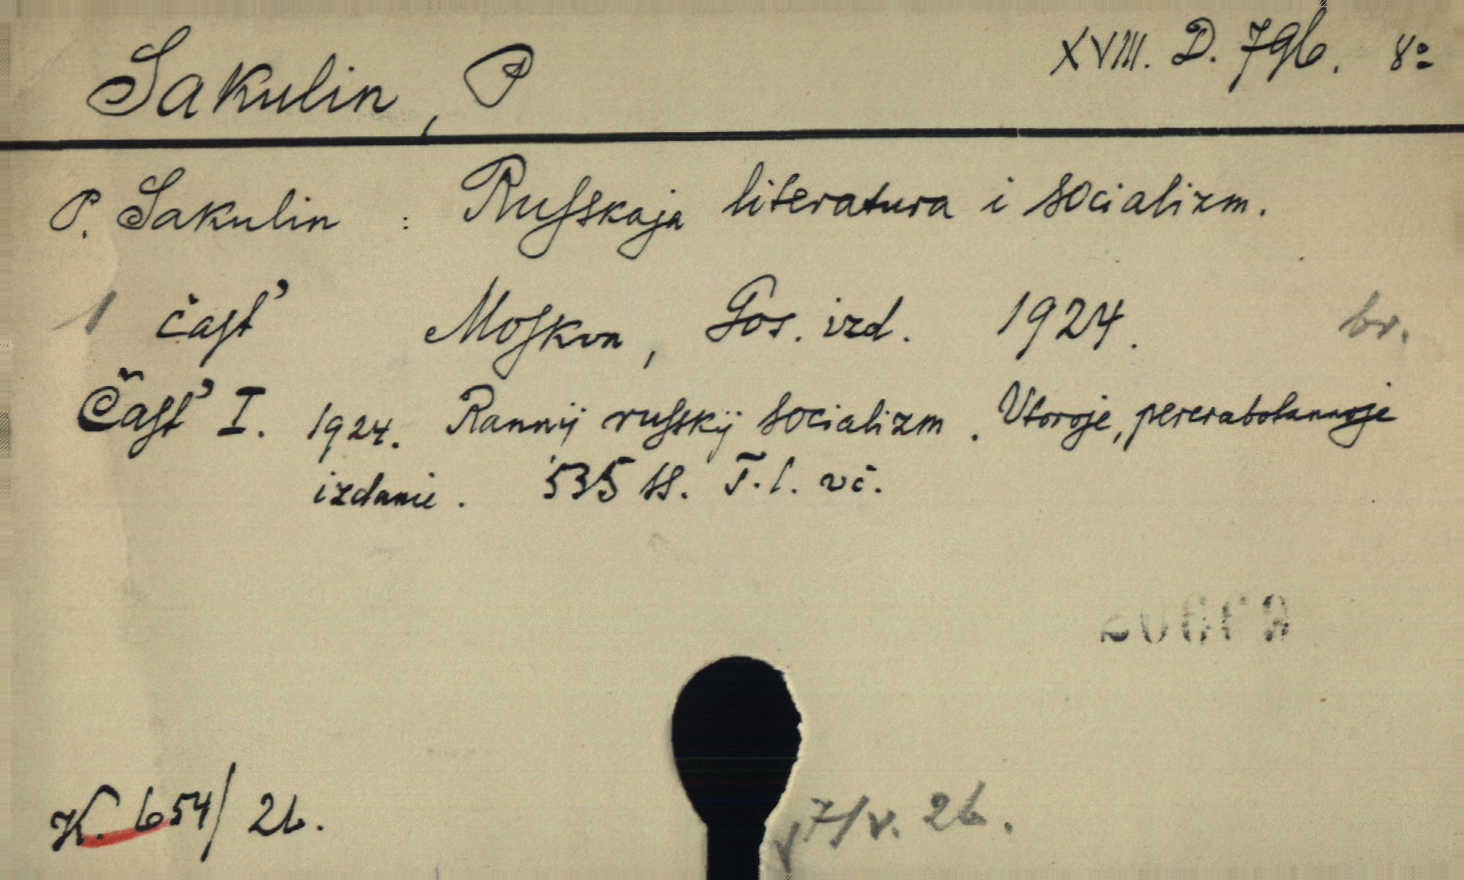 Sakulin, P
XVIII. D. 796. 8º
P. Sakulin : Russkaja literatura i socializm.
1 čast' Moskva, Gos. izd. 1924. br.
Čast' I. 1924. Rannij russkij socializm. Vtoroje, pererabotannoje
izdanie. 535 ss. T. l. vč.
K. 654/26.
7/V. 26.